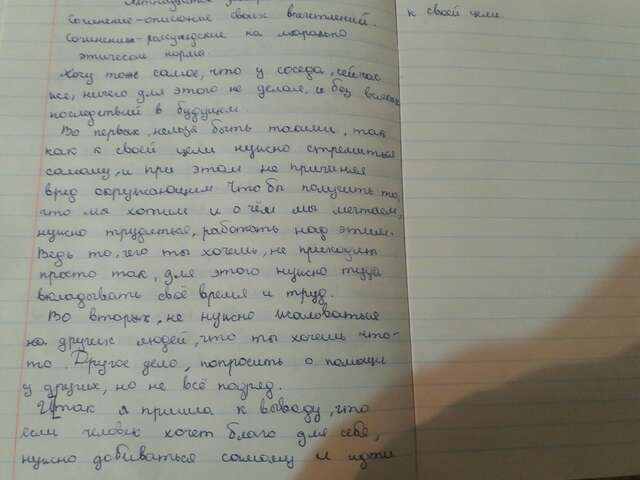 Сочинение-описание своих впечатлений.
Сочинение-рассуждение на морально
этические нормы.
Хочу тоже самое, что у соседа, сейчас
же, ничего для этого не делая, и без всяких
последствий в будущем.
Во первых, нельзя быть такими, так
как к своей цели нужно стремиться
самому, и при этом не причиняя
вред окружающим. Чтобы получить то,
что мы хотим и о чём мы мечтаем,
нужно трудиться, работать над этим.
Ведь то, чего ты хочешь, не приходит
просто так, для этого нужно туда
вкладывать своё время и труд.
Во вторых, не нужно жаловаться
на других людей, что ты хочешь что-
то. Другое дело, попросить о помощи
у других, но не всё подряд.
Итак я пришла к выводу, что
если человек хочет благо для себя,
нужно добиваться самому и идти
к своей цели.